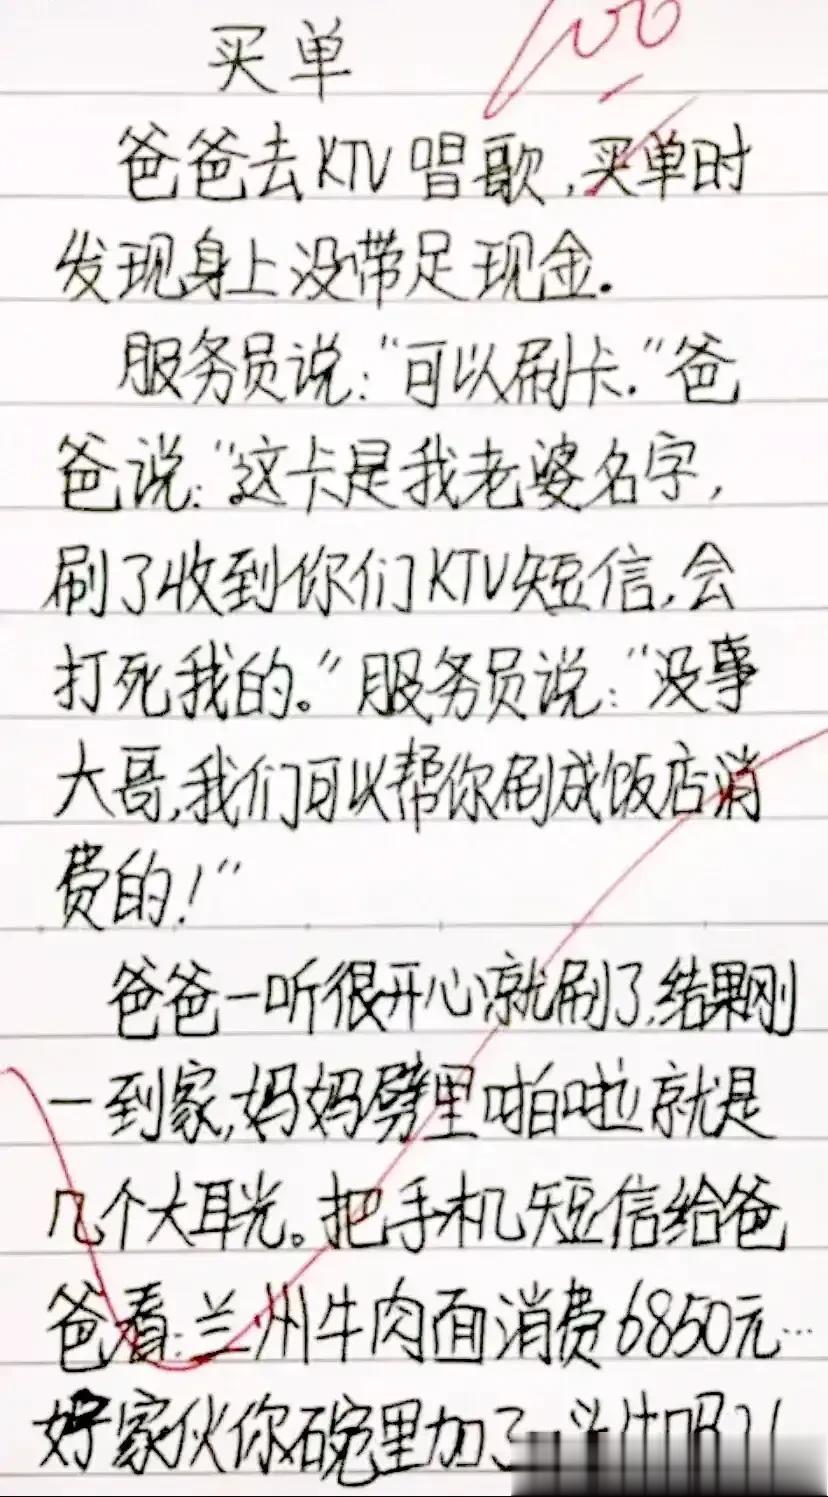 100
买单
爸爸去KTV唱歌,买单时
发现身上没带足现金.
服务员说:"可以刷卡."爸
爸说:"这卡是我老婆名字,
刷了收到你们KTV短信,会
打死我的。"服务员说:"没事
大哥,我们可以帮你刷成饭店消
费的!"
爸爸一听很开心就刷了,结果刚
一到家,妈妈劈里啪啦就是
几个大耳光。把手机短信给爸
爸看:兰州牛肉面消费6850元…
好家伙你碗里加了